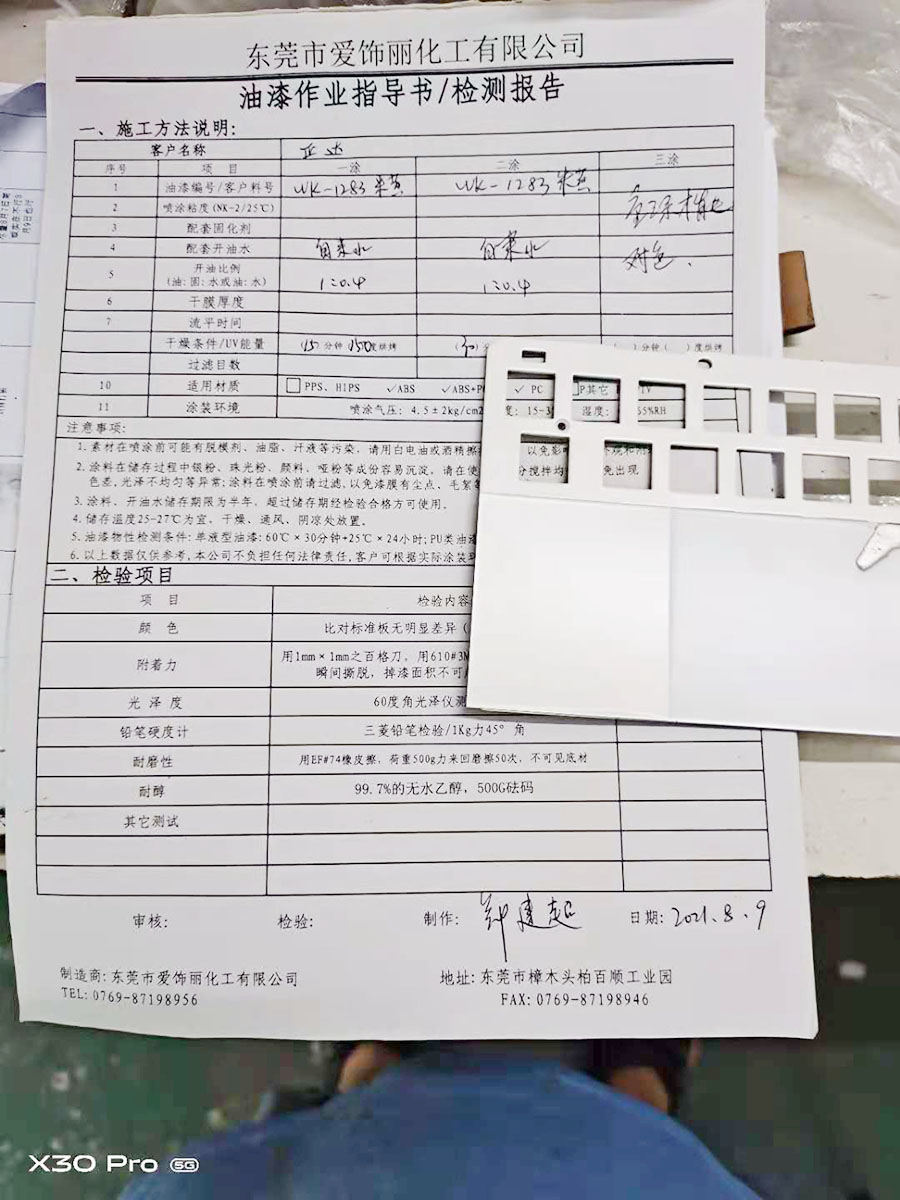 东莞市爱饰丽化工有限公司
油漆作业指导书/检测报告
一、施工方法说明:
客户名称 正达
序号 项 目 一涂 二涂 三涂
1 油漆编号/客户料号 WK-1283 米黄 WK-1283 米黄
2 喷涂粘度(NK-2/25℃)
3 配套固化剂
4 配套开油水 自来水 自来水 对色.
5 开油比例 1:0.4 1:0.4
(油:固:水或油:水)
6 干膜厚度
7 流平时间
干燥条件/UV能量 (15)分钟(150)度烘烤 (30) )分钟( )度烘烤
过滤目数
10 适用材质 PPS、HIPS ✓ABS ✓ABS+P ✓ PC P其它
11 涂装环境 喷涂气压: 4.5±2kg/cm2 度: 15-3 湿度: 65%RH
注意事项:
1. 素材在喷涂前可能有脱模剂、油脂、汗液等污染, 请用白电油或酒精擦 以免影
2. 涂料在储存过程中银粉、珠光粉、颜料、哑粉等成份容易沉淀, 请在使 分搅拌均 免出现
色差,光泽不均匀等异常;涂料在喷涂前请过滤,以免漆膜有尘点、毛絮等
3. 涂料、开油水储存期限为半年, 超过储存期经检验合格方可使用。
4. 储存温度25-27℃为宜、干燥、通风、阴凉处放置。
5. 油漆物性检测条件: 单液型油漆: 60℃×30分钟+25℃×24小时; PU类油漆
6. 以上数据仅供参考, 本公司不负担任何法律责任, 客户可根据实际涂装环
二、检验项目
项 目 检验内容
颜 色 比对标准板无明显差异(
附着力 用1mm×1mm之百格刀, 用610#3M
瞬间撕脱, 掉漆面积不可
光 泽 度 60度角光泽仪测
铅笔硬度计 三菱铅笔检验/1Kg力45° 角
耐磨性 用EF#74橡皮擦, 荷重500g力来回磨擦50次, 不可见底材
耐醇 99.7%的无水乙醇, 500G砝码
其它测试
审核: 检验: 制作: 钟建超 日期: 2021.8.9
制造商: 东莞市爱饰丽化工有限公司 地址: 东莞市樟木头柏百顺工业园
TEL: 0769-87198956 FAX: 0769-87198946
X30 Pro 5G